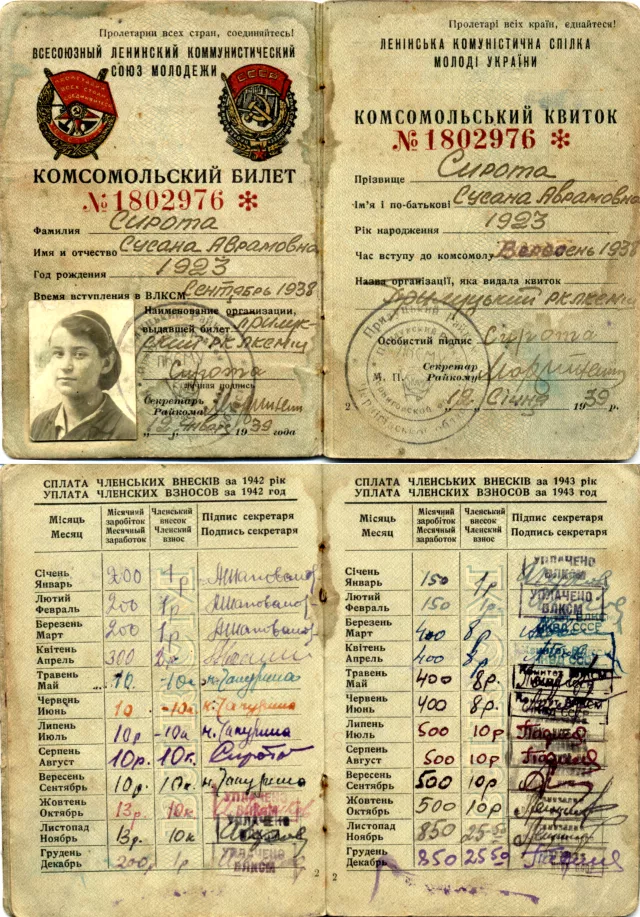 Пролетарии всех стран, соединяйтесь!
ВСЕСОЮЗНЫЙ ЛЕНИНСКИЙ КОММУНИСТИЧЕСКИЙ
СОЮЗ МОЛОДЕЖИ
СССР
КОМСОМОЛЬСКИЙ БИЛЕТ
№ 1802976 *
Фамилия Сирота
Имя и отчество Сусана Аврамовна
Год рождения 1923
Время вступления в ВЛКСМ Сентябрь 1938
Наименование организации,
выдавшей билет Прилук-
ский РК ЛКСМУ
Сирота
Личная подпись
Секретарь
Райкома
"12" Январь 1939 года
Пролетарі всіх країн, єднайтеся!
ЛЕНІНСЬКА КОМУНІСТИЧНА СПІЛКА
МОЛОДІ УКРАЇНИ
КОМСОМОЛЬСЬКИЙ КВИТОК
№ 1802976 *
Прізвище Сирота
Ім'я і по-батькові Сусана Аврамовна
Рік народження 1923
Час вступу до комсомолу Вересень 1938
Назва організації, яка видала квиток
Прилуцький РК ЛКСМУ
Особистий підпис Сирота
Секретар
М. П. Райкому
"12" Січня 1939 р.
2
СПЛАТА ЧЛЕНСЬКИХ ВНЕСКІВ за 1942 рік
УПЛАТА ЧЛЕНСКИХ ВЗНОСОВ за 1942 год
Місяць Місячний заробіток Членський внесок Підпис секретаря
Месяц Месячный заработок Членский взнос Подпись секретаря
Січень Январь 200 1р
Лютий Февраль 200 1р
Березень Март 200 1р
Квітень Апрель 300
Травень Май 10 -10к
Червень Июнь 10 -10к
Липень Июль 10р -10к
Серпень Август 10р. 10к. Сирота
Вересень Сентябрь 10р. 10к.
Жовтень Октябрь 13р 10к УПЛАЧЕНО
Листопад Ноябрь 13р. 10к УПЛАЧЕНО
Грудень Декабрь 200р. 1р УПЛАЧЕНО ВЛКСМ
2
СПЛАТА ЧЛЕНСЬКИХ ВНЕСКІВ за 1943 рік
УПЛАТА ЧЛЕНСКИХ ВЗНОСОВ за 1943 год
Місяць Місячний заробіток Членський внесок Підпис секретаря
Месяц Месячный заработок Членский взнос Подпись секретаря
Січень Январь 150 1р УПЛАЧЕНО ВЛКСМ
Лютий Февраль 150 1р УПЛАЧЕНО ВЛКСМ
Березень Март 400 8р.
Квітень Апрель 400 8р.
Травень Май 400 8р.
Червень Июнь 400 8р.
Липень Июль 500 10р
Серпень Август 500 10р
Вересень Сентябрь 500 10р
Жовтень Октябрь 500 10р
Листопад Ноябрь 850 25-50
Грудень Декабрь 850 25 50
2